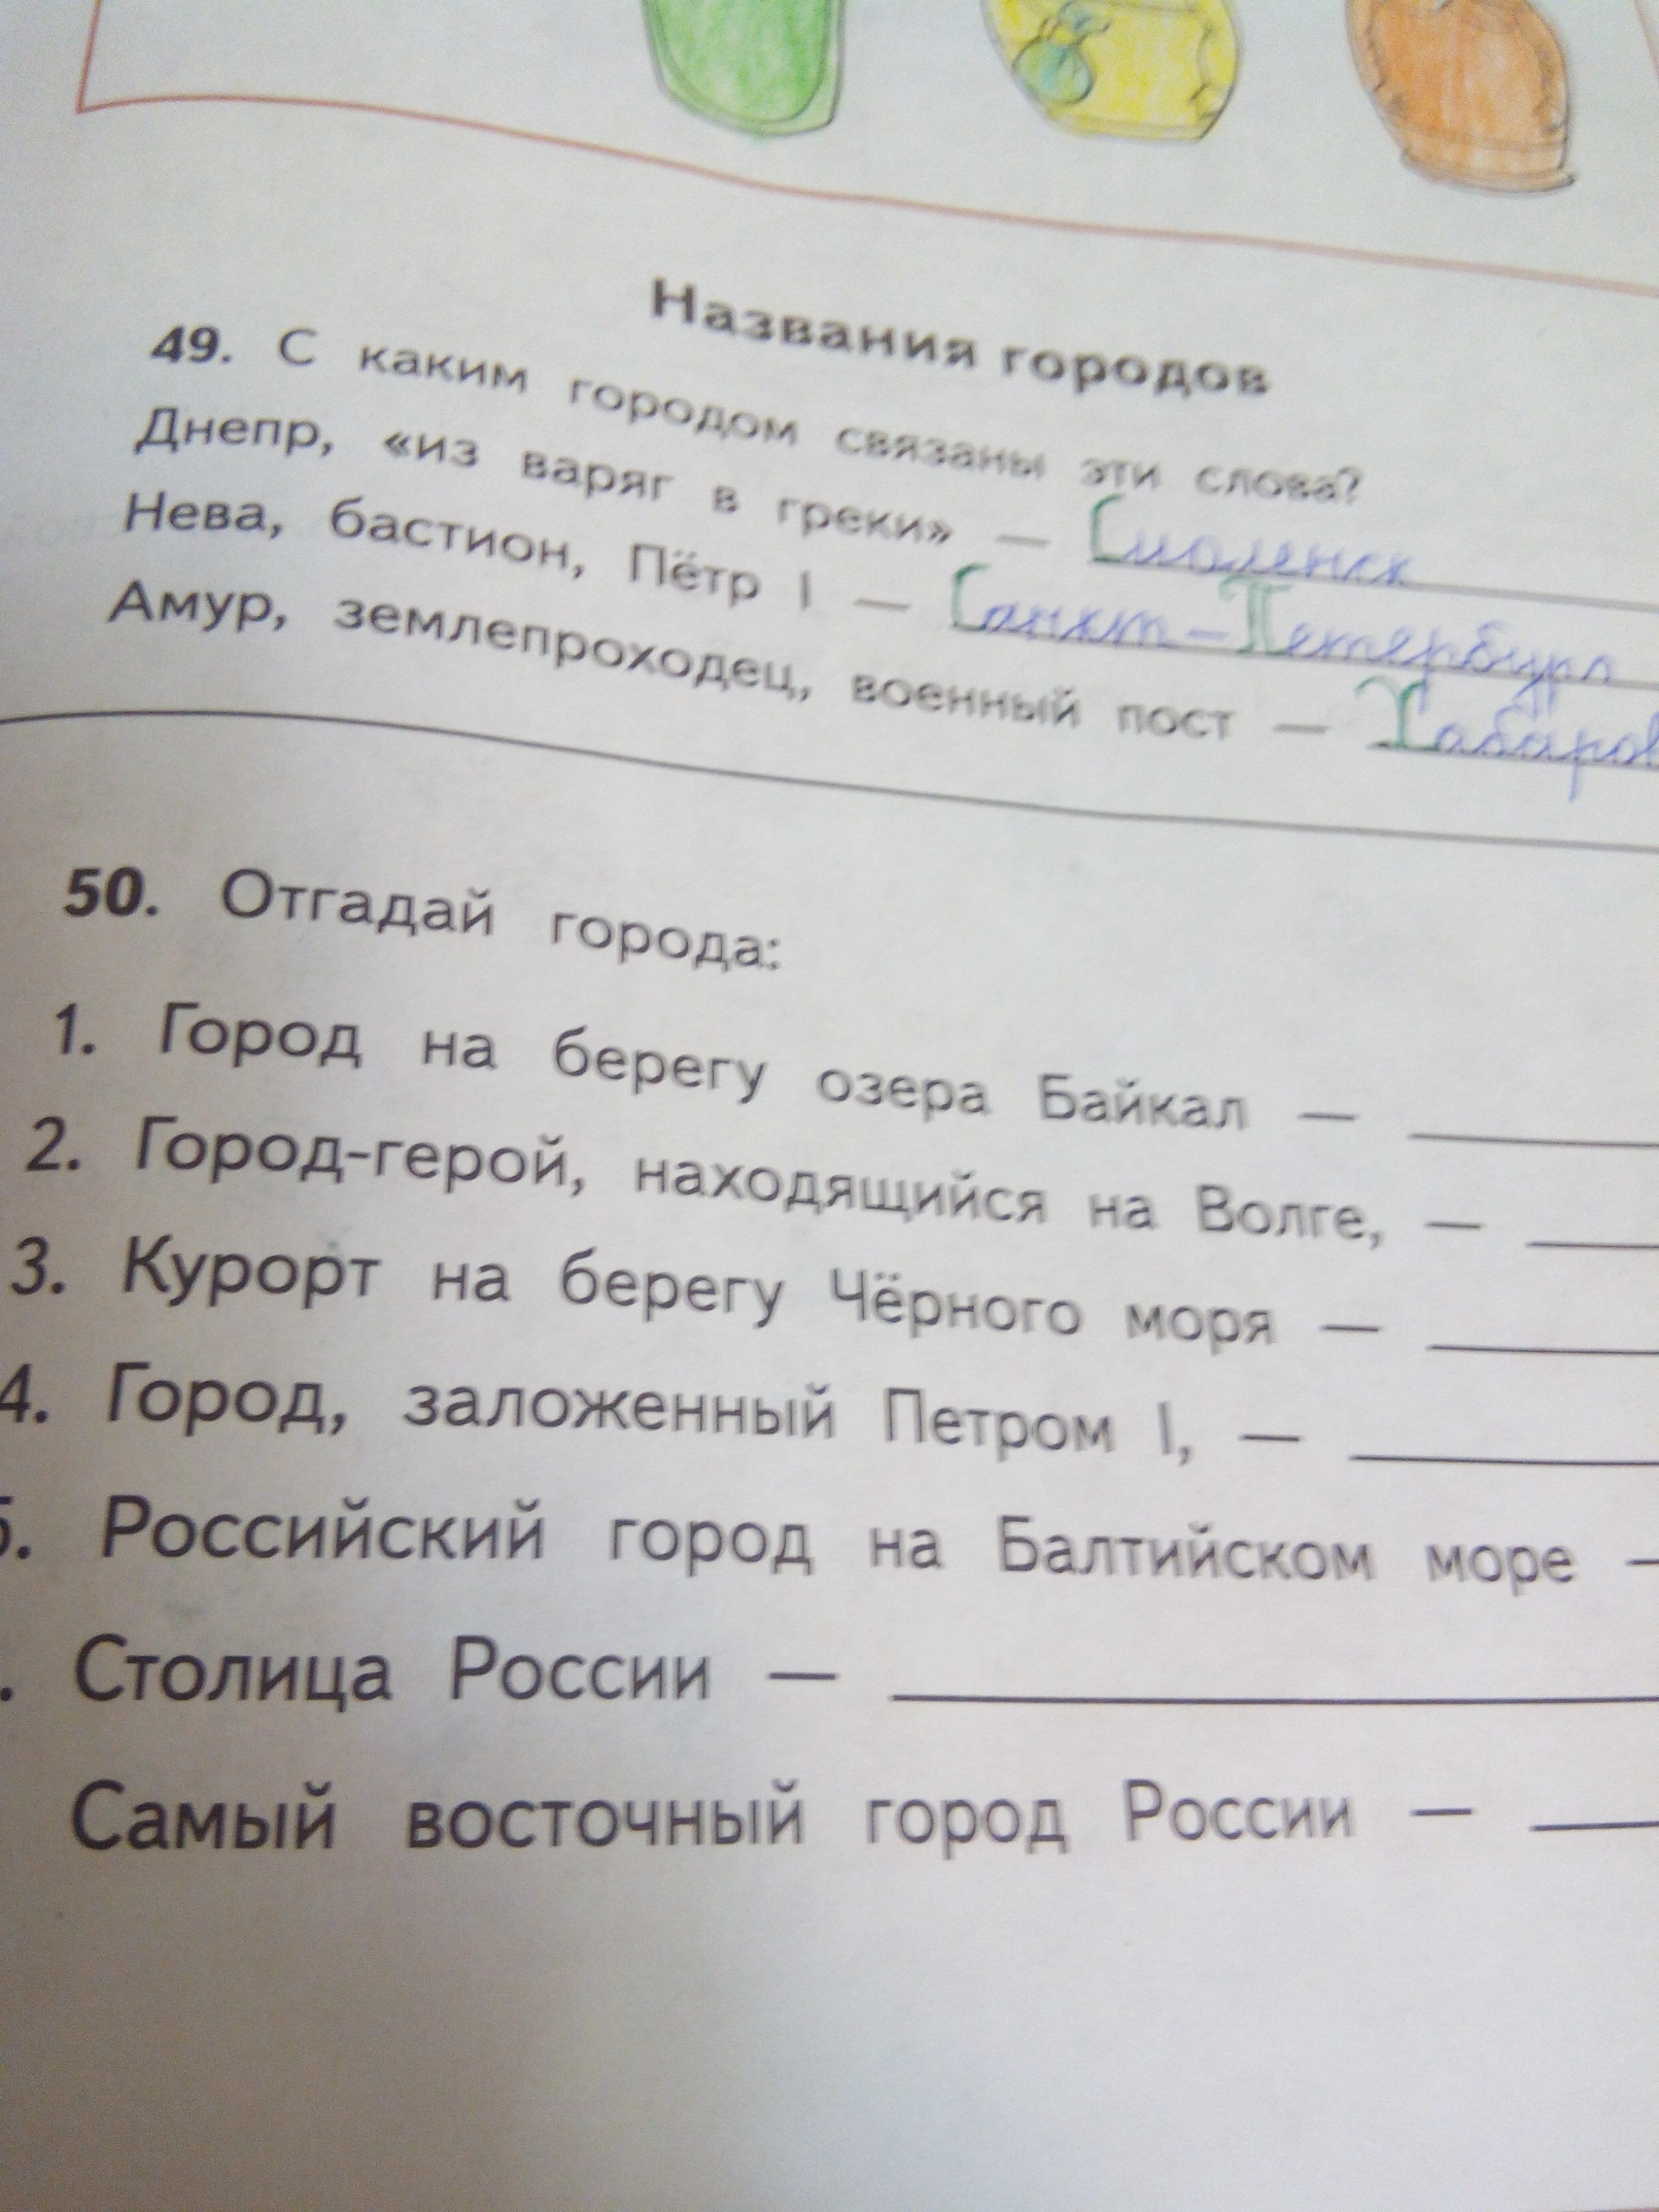 Названия городов
49. С каким городом связаны эти слова?
Днепр, «из варяг в греки» — Смоленск
Нева, бастион, Пётр I — Санкт-Петербург
Амур, землепроходец, военный пост — Хабаров
50. Отгадай города:
1. Город на берегу озера Байкал —
2. Город-герой, находящийся на Волге, —
3. Курорт на берегу Чёрного моря —
4. Город, заложенный Петром I, —
5. Российский город на Балтийском море —
. Столица России —
Самый восточный город России —